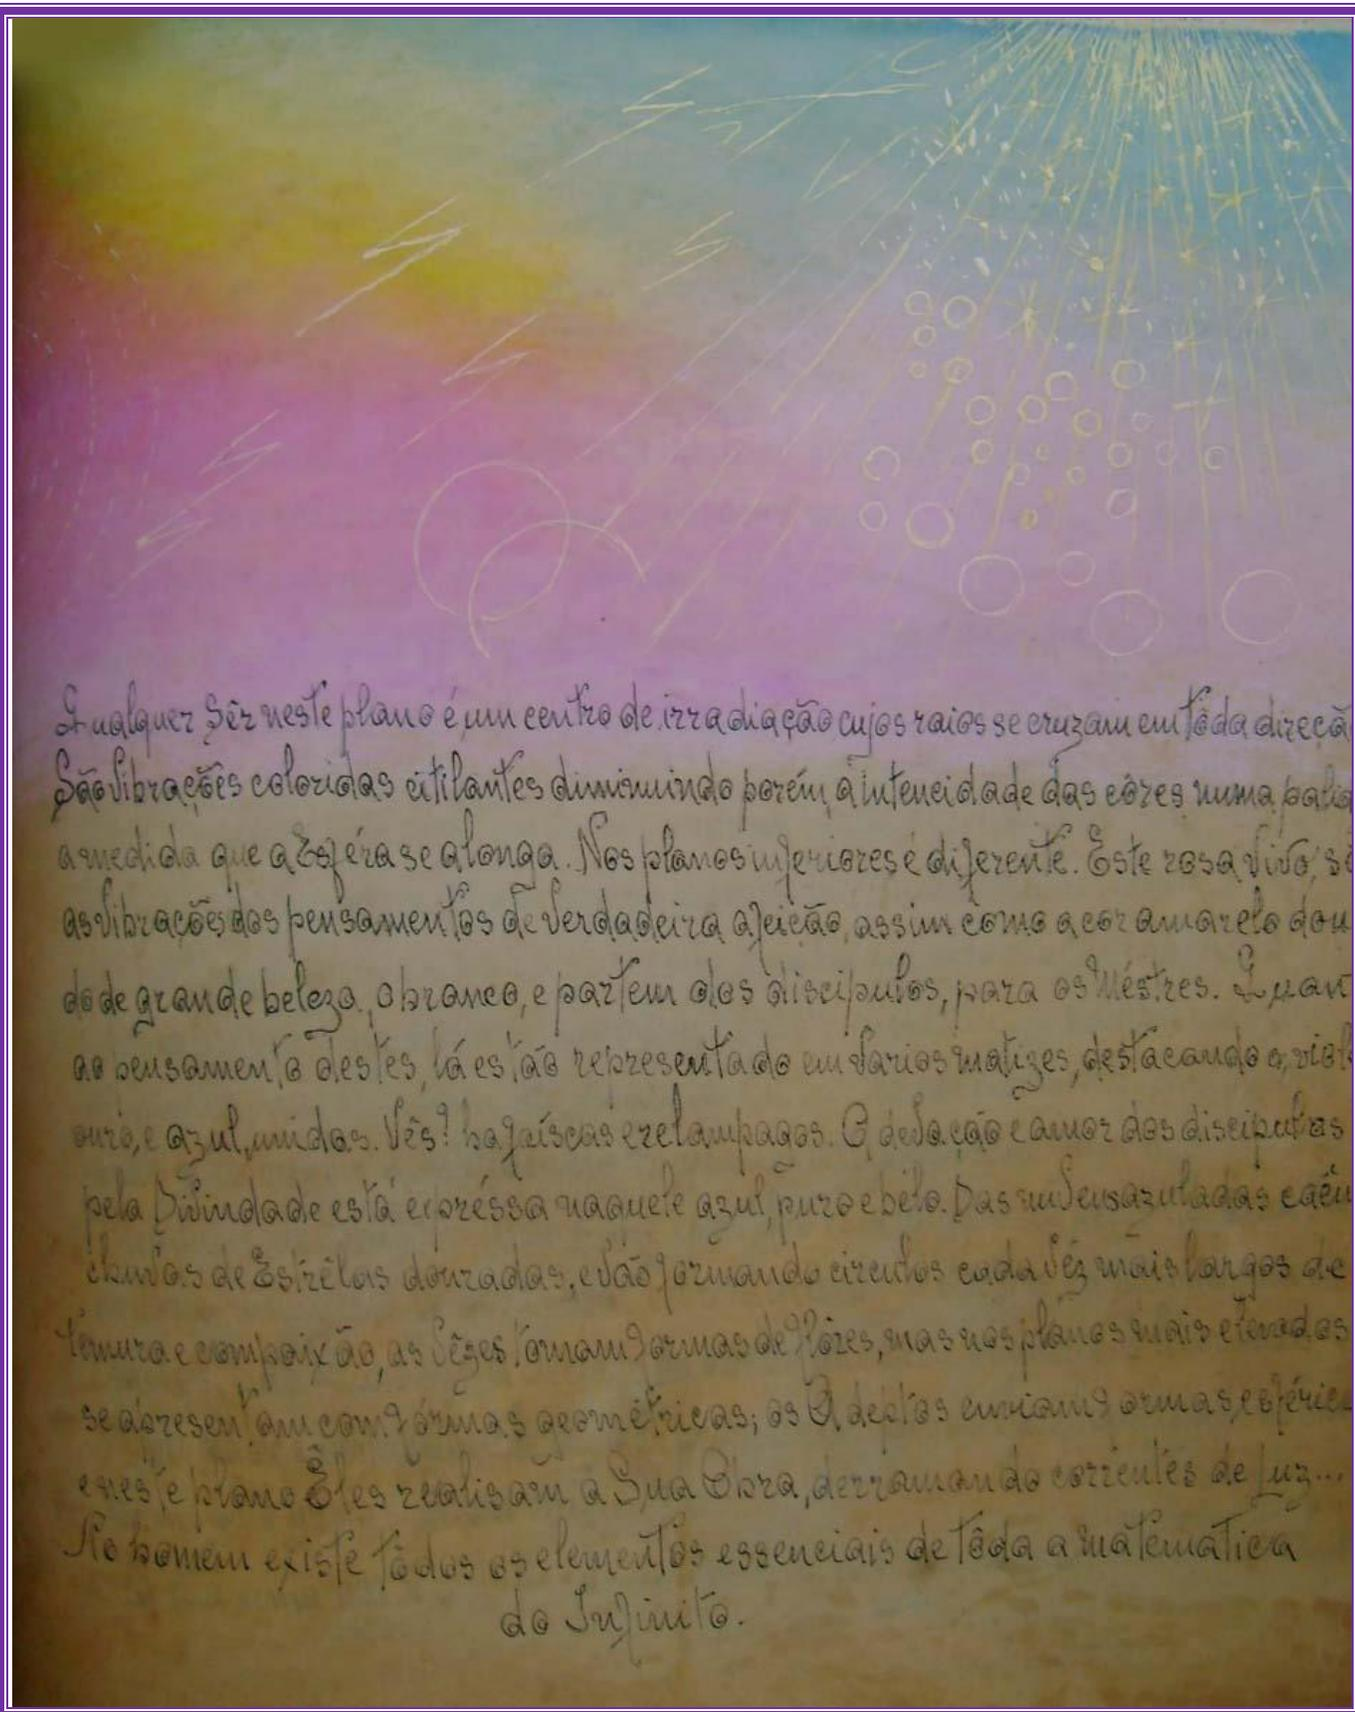 Qualquer Sêr neste plano é um centro de irradiação cujos raios se cruzam em tôda direçã
São vibrações coloridas citilantes diminuindo porém, a intencidade das côres numa
a medida que a Esféra se alonga. Nos planos inferiores é diferente. Este rosa vivo, sã
as vibrações dos pensamentos de verdadeira afeição, assim como a cor amarelo dou
do de grande beleza, o branco, e partem dos discipulos, para os Méstres. Quan
ao pensamento destes, lá estão representado em varios matizes, destacando o, viol
ouro, e azul, unidos. Vês? ha faíscas e relampagos. A devoção e amor dos discipulos
pela Divindade está expréssa naquele azul, puro e bélo. Das nuvens azuladas caêm
chuvas de Estrêlas douradas, e vão formando circulos cada vêz mais largos de
ternura e compaixão, as vêzes tomam formas de flôres, mas nos planos mais elevados
se apresentam com fórmas geométricas; os Adeptos enviam formas, esféric
e neste plano Êles realisam a Sua Obra, derramando correntes de Luz...
No homem existe tôdos os elementos essenciais de tôda a matematica
do Infinito.